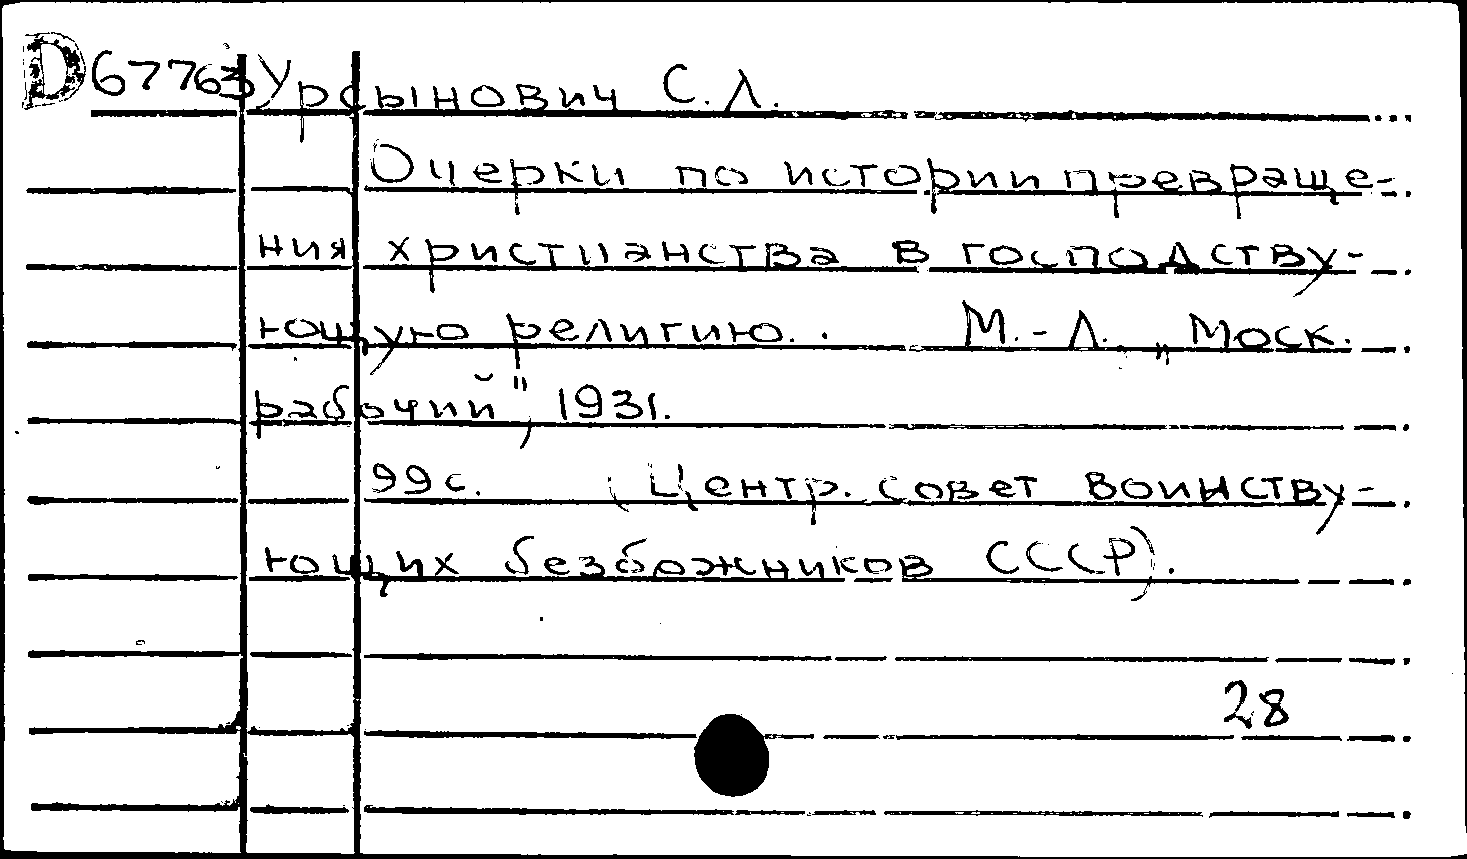 D67763 Урсынович С.Л.
Очерки по истории превраще-
ния христианства в господству-
ющую религию. . М.-Л. „Моск.
рабочий", 1931.
99с. (Центр. совет воинству-
ющих безбожников СССР).
28